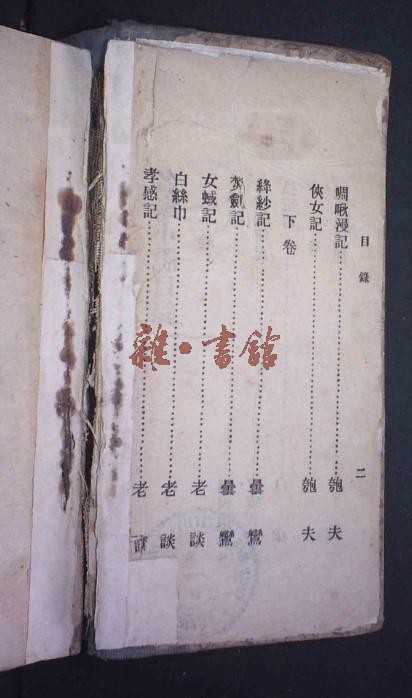 目錄 二
啁啾漫記……………………匏夫
俠女記……………………匏夫
下卷
絳紗記……………………曇鸞
焚劍記……………………曇鸞
女蜮記……………………老談
白絲巾……………………老談
孝感記……………………老談
雜·書館